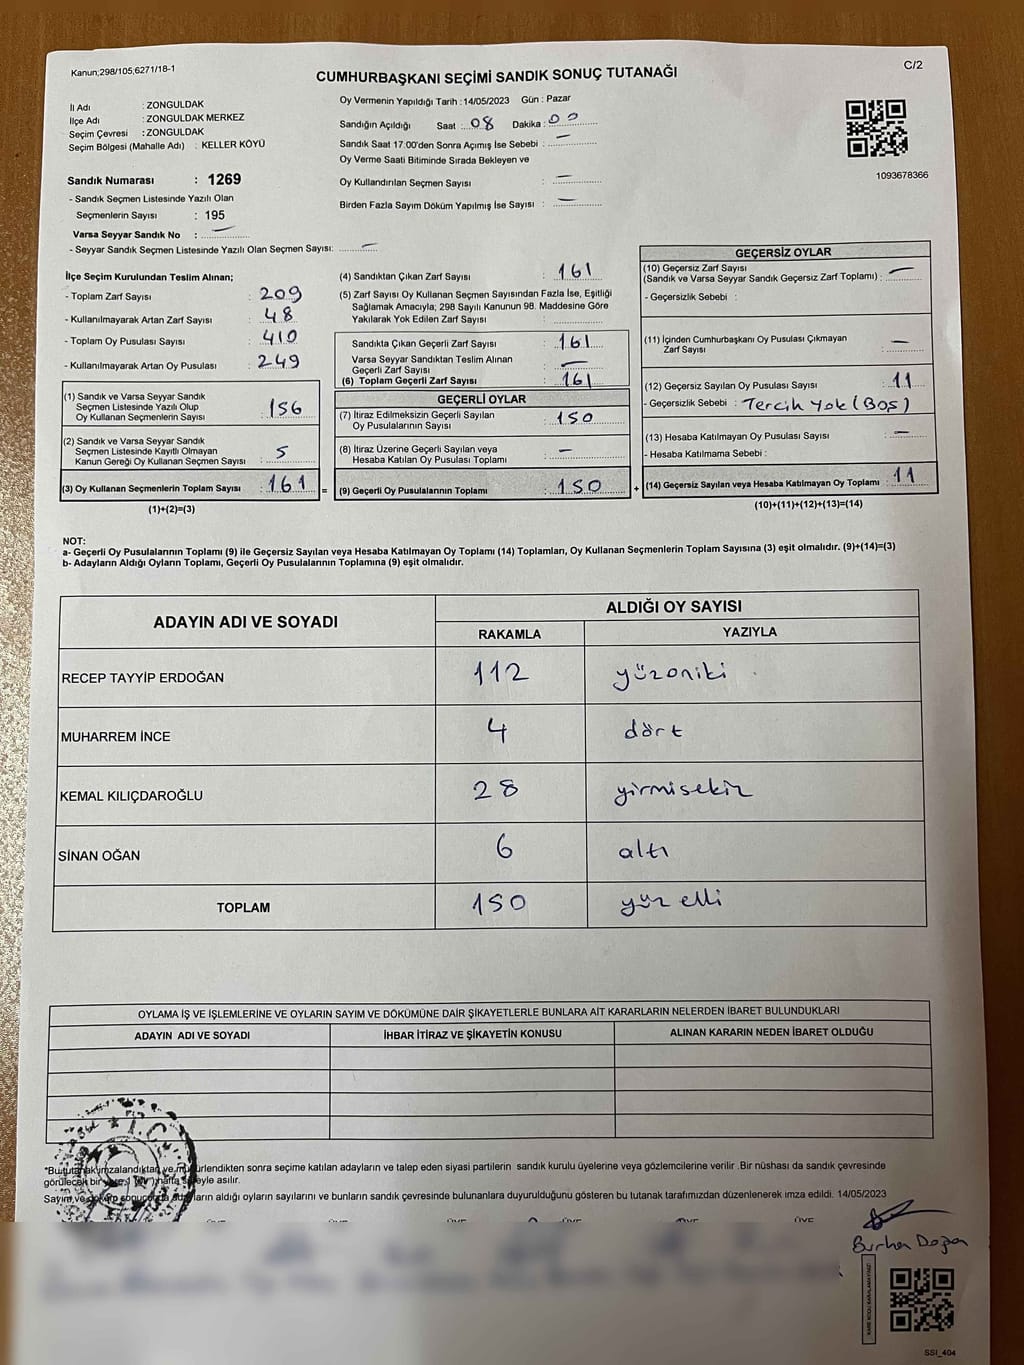 Kanun;298/105;6271/18-1
C/2
CUMHURBAŞKANI SEÇİMİ SANDIK SONUÇ TUTANAĞI
İl Adı : ZONGULDAK
İlçe Adı : ZONGULDAK MERKEZ
Seçim Çevresi : ZONGULDAK
Seçim Bölgesi (Mahalle Adı) : KELLER KÖYÜ
Oy Vermenin Yapıldığı Tarih : 14/05/2023 Gün : Pazar
Sandığın Açıldığı Saat : 08 Dakika : 00
Sandık Saat 17:00'den Sonra Açımış İse Sebebi : —
Oy Verme Saati Bitiminde Sırada Bekleyen ve
Oy Kullandırılan Seçmen Sayısı : —
Birden Fazla Sayım Döküm Yapılmış İse Sayısı : —
1093678366
Sandık Numarası : 1269
- Sandık Seçmen Listesinde Yazılı Olan
Seçmenlerin Sayısı : 195
Varsa Seyyar Sandık No : —
- Seyyar Sandık Seçmen Listesinde Yazılı Olan Seçmen Sayısı: —
İlçe Seçim Kurulundan Teslim Alınan;
- Toplam Zarf Sayısı : 209
- Kullanılmayarak Artan Zarf Sayısı : 48
- Toplam Oy Pusulası Sayısı : 410
- Kullanılmayarak Artan Oy Pusulası : 249
(1) Sandık ve Varsa Seyyar Sandık
Seçmen Listesinde Yazılı Olup
Oy Kullanan Seçmenlerin Sayısı : 156
(2) Sandık ve Varsa Seyyar Sandık
Seçmen Listesinde Kayıtlı Olmayan
Kanun Gereği Oy Kullanan Seçmen Sayısı : 5
(3) Oy Kullanan Seçmenlerin Toplam Sayısı : 161
(1)+(2)=(3)
(4) Sandıktan Çıkan Zarf Sayısı : 161
(5) Zarf Sayısı Oy Kullanan Seçmen Sayısından Fazla İse, Eşitliği
Sağlamak Amacıyla; 298 Sayılı Kanunun 98. Maddesine Göre
Yakılarak Yok Edilen Zarf Sayısı :
Sandıkta Çıkan Geçerli Zarf Sayısı : 161
Varsa Seyyar Sandıktan Teslim Alınan
Geçerli Zarf Sayısı : —
(6) Toplam Geçerli Zarf Sayısı : 161
GEÇERLİ OYLAR
(7) İtiraz Edilmeksizin Geçerli Sayılan
Oy Pusulalarının Sayısı : 150
(8) İtiraz Üzerine Geçerli Sayılan veya
Hesaba Katılan Oy Pusulası Toplamı : —
= (9) Geçerli Oy Pusulalarının Toplamı : 150
GEÇERSİZ OYLAR
(10) Geçersiz Zarf Sayısı
(Sandık ve Varsa Seyyar Sandık Geçersiz Zarf Toplamı) : —
- Geçersizlik Sebebi :
(11) İçinden Cumhurbaşkanı Oy Pusulası Çıkmayan
Zarf Sayısı : —
(12) Geçersiz Sayılan Oy Pusulası Sayısı : 11
- Geçersizlik Sebebi : Tercih Yok (Boş)
(13) Hesaba Katılmayan Oy Pusulası Sayısı : —
- Hesaba Katılmama Sebebi :
+ (14) Geçersiz Sayılan veya Hesaba Katılmayan Oy Toplamı : 11
(10)+(11)+(12)+(13)=(14)
NOT:
a- Geçerli Oy Pusulalarının Toplamı (9) ile Geçersiz Sayılan veya Hesaba Katılmayan Oy Toplamı (14) Toplamları, Oy Kullanan Seçmenlerin Toplam Sayısına (3) eşit olmalıdır. (9)+(14)=(3)
b- Adayların Aldığı Oyların Toplamı, Geçerli Oy Pusulalarının Toplamına (9) eşit olmalıdır.
ADAYIN ADI VE SOYADI ALDIĞI OY SAYISI
RAKAMLA YAZIYLA
RECEP TAYYİP ERDOĞAN 112 yüzoniki
MUHARREM İNCE 4 dört
KEMAL KILIÇDAROĞLU 28 yirmisekiz
SİNAN OĞAN 6 altı
TOPLAM 150 yüz elli
OYLAMA İŞ VE İŞLEMLERİNE VE OYLARIN SAYIM VE DÖKÜMÜNE DAİR ŞİKAYETLERLE BUNLARA AİT KARARLARIN NELERDEN İBARET BULUNDUKLARI
ADAYIN ADI VE SOYADI İHBAR İTİRAZ VE ŞİKAYETİN KONUSU ALINAN KARARIN NEDEN İBARET OLDUĞU
T.C.
*Bu tutanak imzalandıktan ve mühürlendikten sonra seçime katılan adayların ve talep eden siyasi partilerin sandık kurulu üyelerine veya gözlemcilerine verilir .Bir nüshası da sandık çevresinde
görülecek bir yere 1 hafta süreyle asılır.
Sayım ve döküm sonucunda adayların aldığı oyların sayılarını ve bunların sandık çevresinde bulunanlara duyurulduğunu gösteren bu tutanak tarafımızdan düzenlenerek imza edildi. 14/05/2023
ÜYE ÜYE ÜYE ÜYE ÜYE
Burhan Doğan
SSI_404